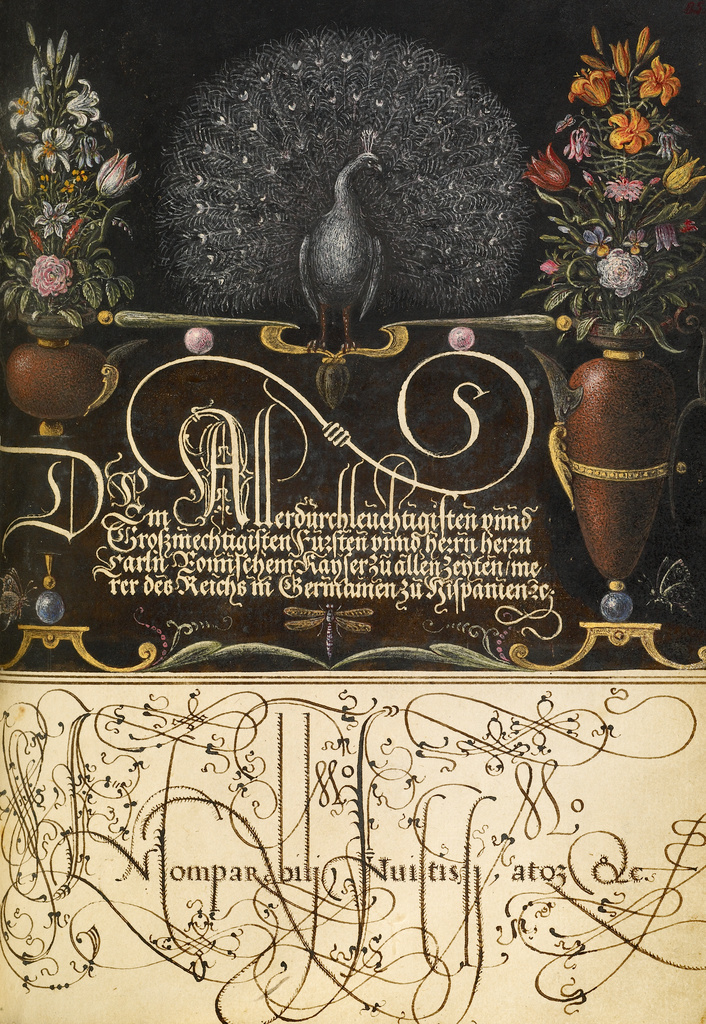 Dem Allerdurchleuchtigisten vnnd
Großmechtigisten Fürsten vnnd herrn herrn
Carln Romischem Kayser zu allen Zeyten / me,
rer des Reichs in Germanien zu Hispanien ꝛc.
omparabili, &c.